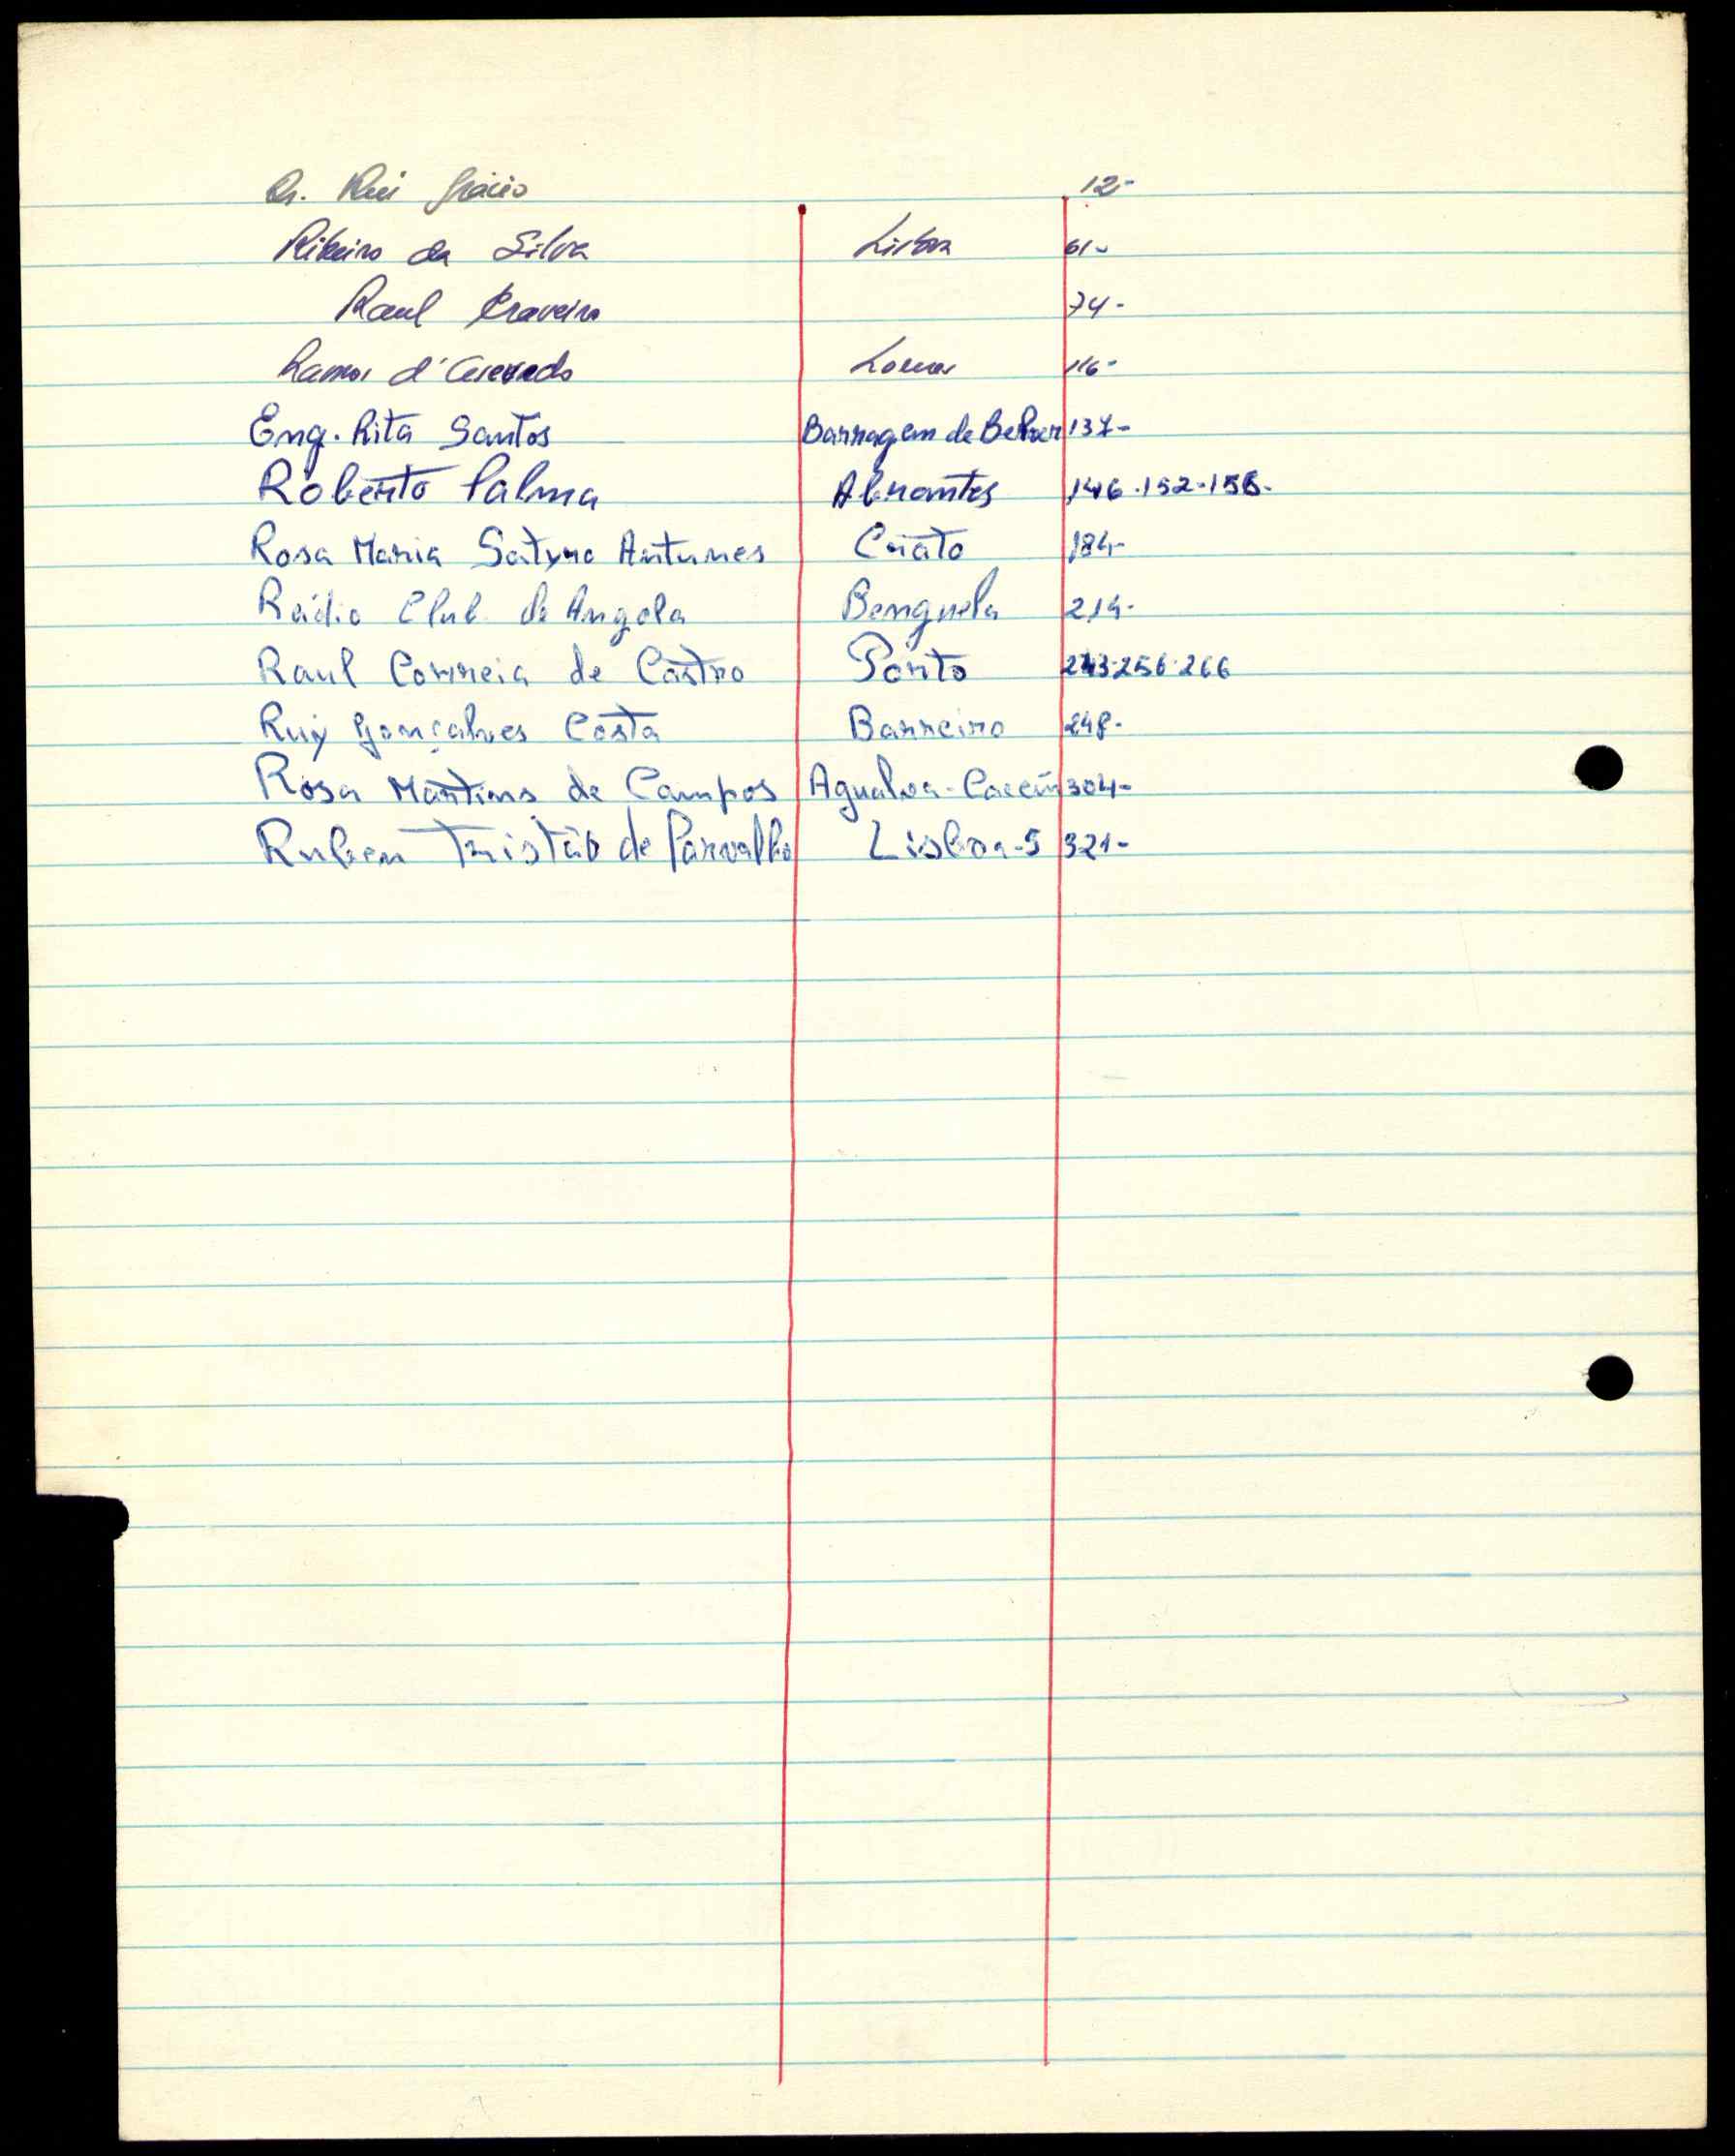 Dr. Rui Grácio 12-
Ribeiro da Silva Lisboa 61-
Raul Craveiro 74-
Ramos d'Azevedo 116-
Eng. Rita Santos Barragem de Belver 137-
Roberto Palma Abrantes 146-152-158-
Rosa Maria Satyro Antunes Crato 184-
Rádio Club de Angola Benguela 214-
Raul Correia de Castro Porto 243-256-266
Ruy Gonçalves Costa Barreiro 248-
Rosa Martins de Campos Agualva-Cacém 304-
Ruben Tristão de Carvalho Lisboa-5 321-